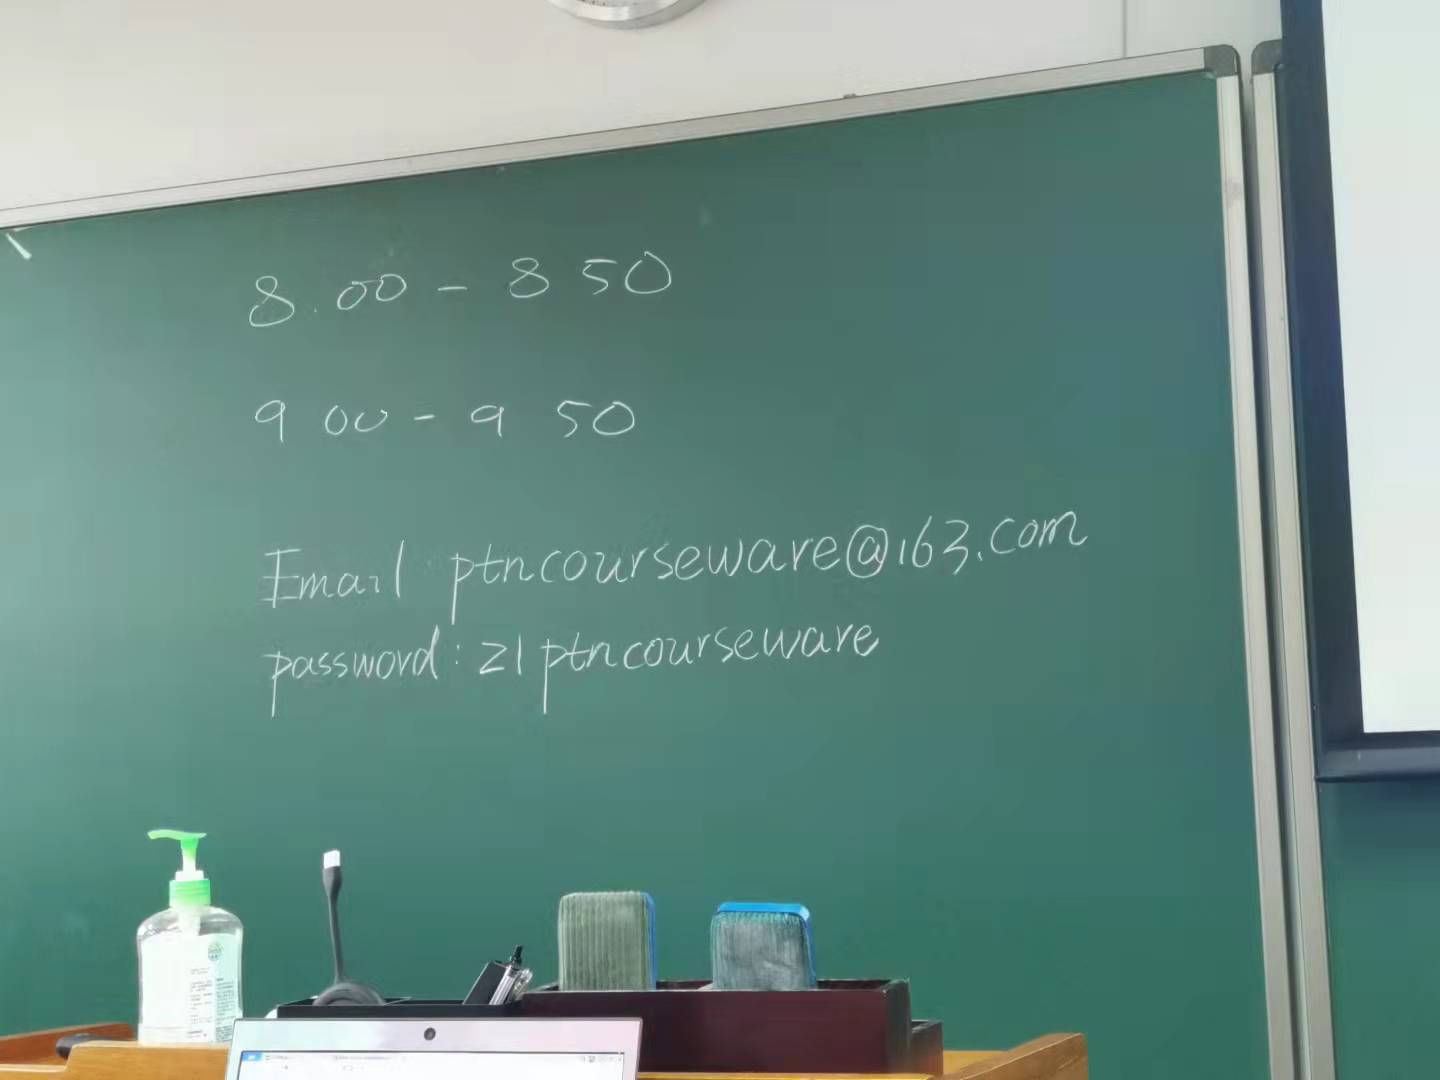 8.00 - 8 50
9 00 - 9 50
Email ptncourseware@163.com
password: 21ptncourseware